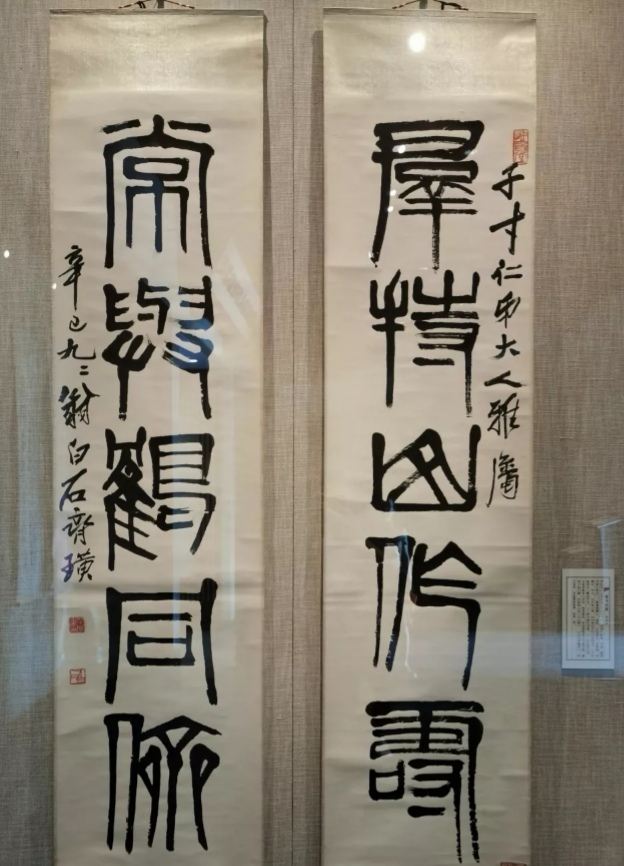 羣持山作壽
子才仁弟大人雅屬
常與鶴同儕
辛巳九二翁白石齊璜